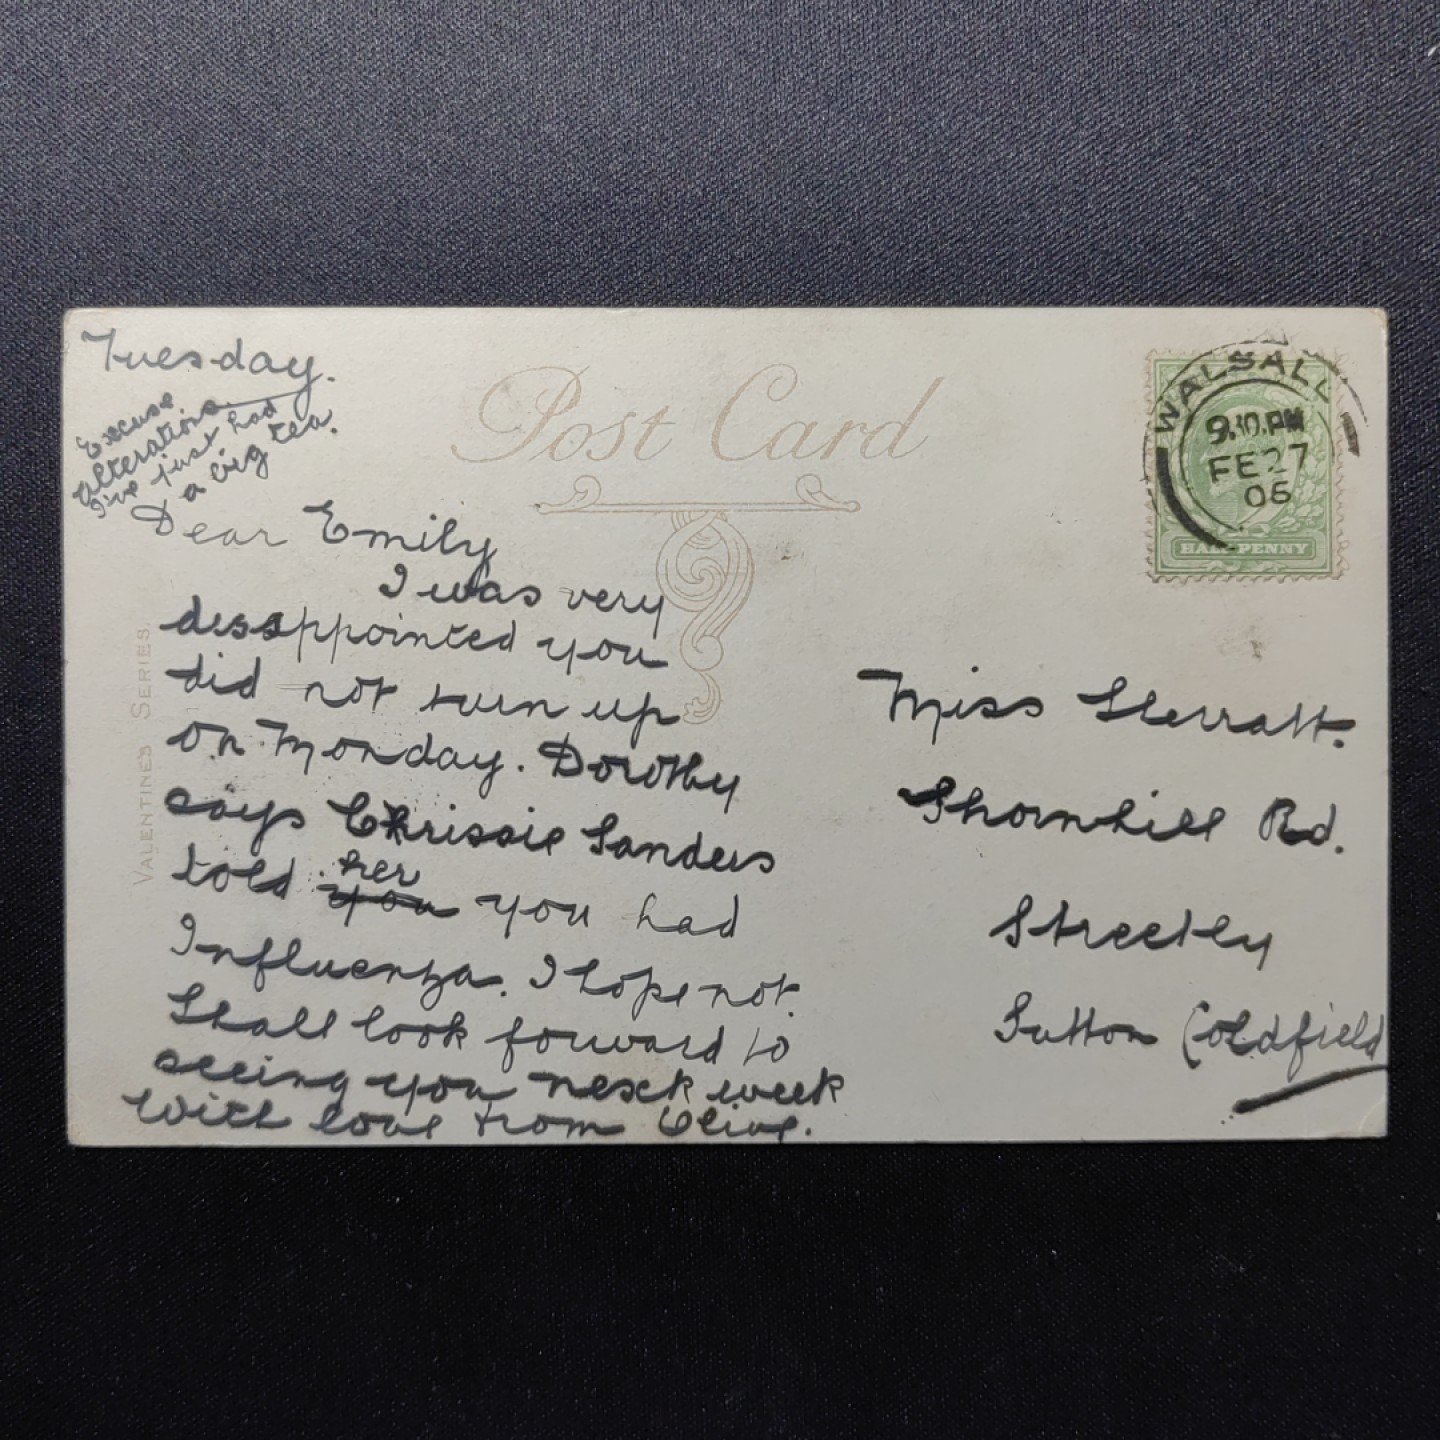 Tuesday.
Excuse
alterations
I've just had
a big tea.
Post Card
WALSALL
9.10.PM
FE 27
06
HALFPENNY
Dear Emily
I was very
dissappointed you
did not turn up
on Monday. Dorothy
says Chrissie Sanders
her
told you you had
Influenza. I hope not.
Shall look forward to
seeing you next week
With love from Olive.
Miss Sherratt.
Thornhill Rd.
Streetly
Sutton Coldfield
VALENTINES SERIES.